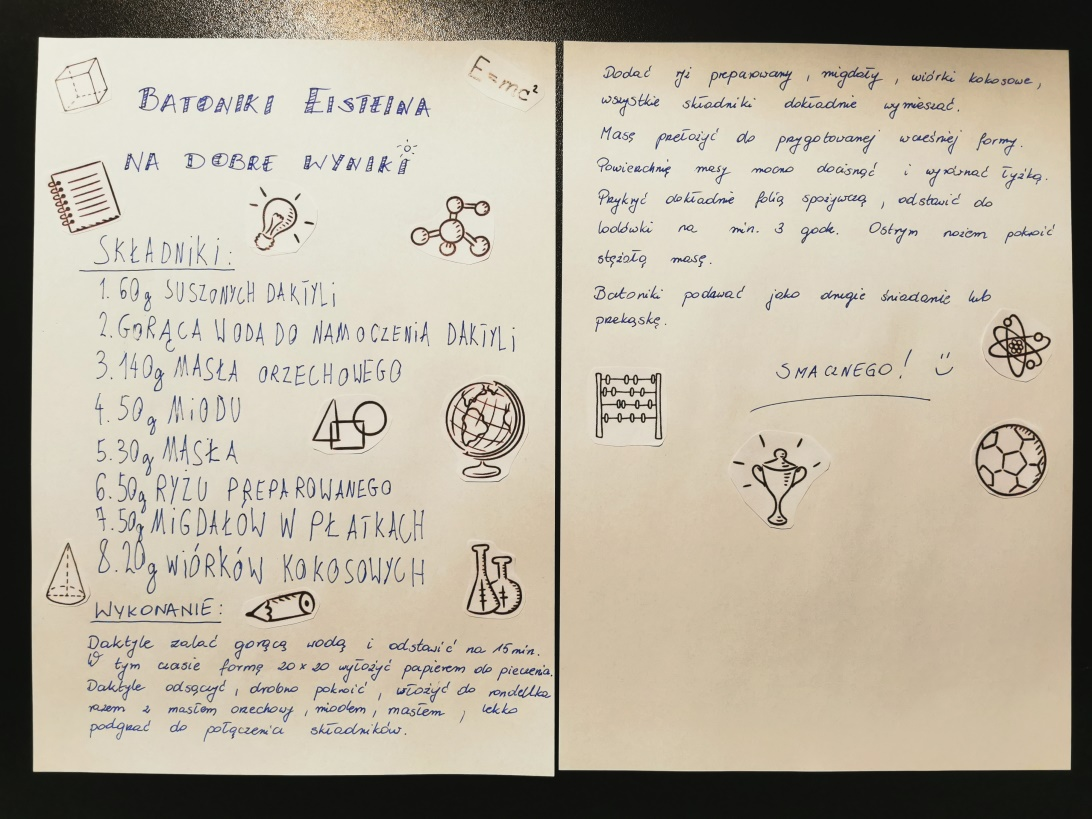 E=mc²
BATONIKI EISTEINA
NA DOBRE WYNIKI
SKŁADNIKI:
1. 60g SUSZONYCH DAKTYLI
2. GORĄCA WODA DO NAMOCZENIA DAKTYLI
3. 140g MASŁA ORZECHOWEGO
4. 50g MIODU
5. 30g MASŁA
6. 50g RYŻU PREPAROWANEGO
7. 50g MIGDAŁÓW W PŁATKACH
8. 20g WIÓRKÓW KOKOSOWYCH
WYKONANIE:
Daktyle zalać gorącą wodą i odstawić na 15 min.
W tym czasie formę 20 x 20 wyłożyć papierem do pieczenia.
Daktyle odsączyć, drobno pokroić, włożyć do rondelka
razem z masłem orzechowy, miodem, masłem, lekko
podgrzać do połączenia składników.
Dodać ryż preparowany, migdały, wiórki kokosowe,
wszystkie składniki dokładnie wymieszać.
Masę przełożyć do przygotowanej wcześniej formy.
Powierzchnię masy mocno docisnąć i wyrównać łyżką.
Przykryć dokładnie folią spożywczą, odstawić do
lodówki na min. 3 godz. Ostrym nożem pokroić
stężałą masę.
Batoniki podawać jako drugie śniadanie lub
przekąskę.
SMACZNEGO!